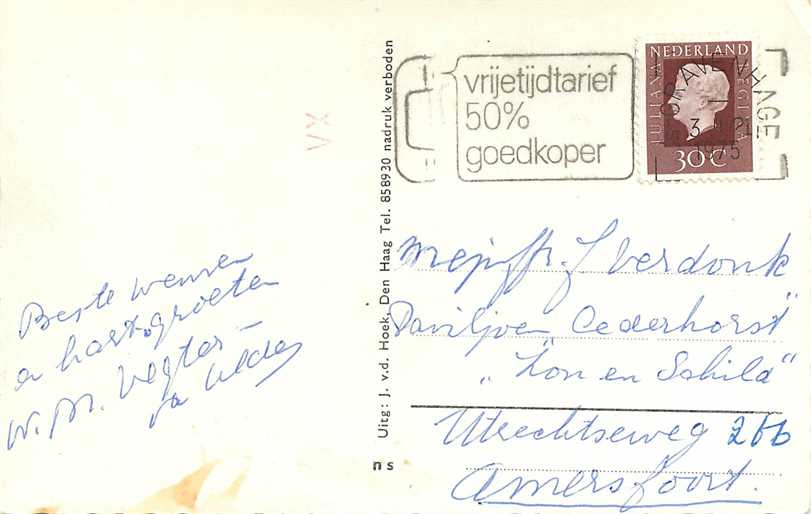 Beste wensen
en hart. groeten
W. M. Vegter –
Uitg: J. v.d. Hoek, Den Haag Tel. 858930 nadruk verboden
ns
XV
vrijetijdtarief
50%
goedkoper
NEDERLAND
JULIANA REGINA
30c
'S-GRAVENHAGE
1975
Mejuffr. J Verdonk
Paviljoen Cederhorst"
"Zon en Schild"
Utrechtseweg 266
Amersfoort.